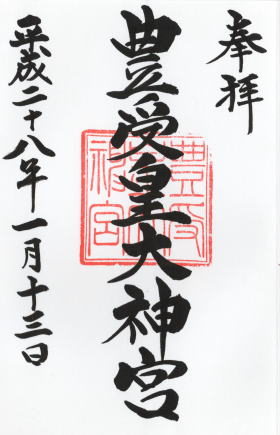 奉拝
豊受皇大神宮
平成二十八年一月十三日